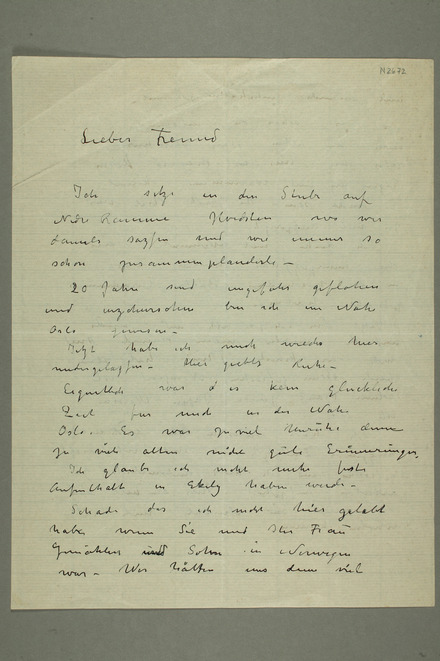 N2672
Lieber Freund
Ich sitze in der Stube auf
Nedre Ramme Hvidsten wo wir
damals saßen und wie immer so
schön zusammenplauderte –
20 Jahre sind ungefähr geflohen
und inzwischen bin ich im Nähe
Oslo gewesen –
Jetzt habe ich mich wieder hier
niedergelaßen – Hier giebts Ruhe –
Eigentlich war es kein glückliche
Zeit für mich in der Nähe
Oslo. Es war zu viel Unruhe
zu viele alten nicht gute Erinnerungen
Ich glaube ich nicht mehr feste
Aufenthalt in Ekely haben werde –
Schade das ich nicht hier gelebt
habe wenn Sie und Ihr Frau
Gemahlin und Sohn in Norwegen
war – Wir hätten uns dann viel